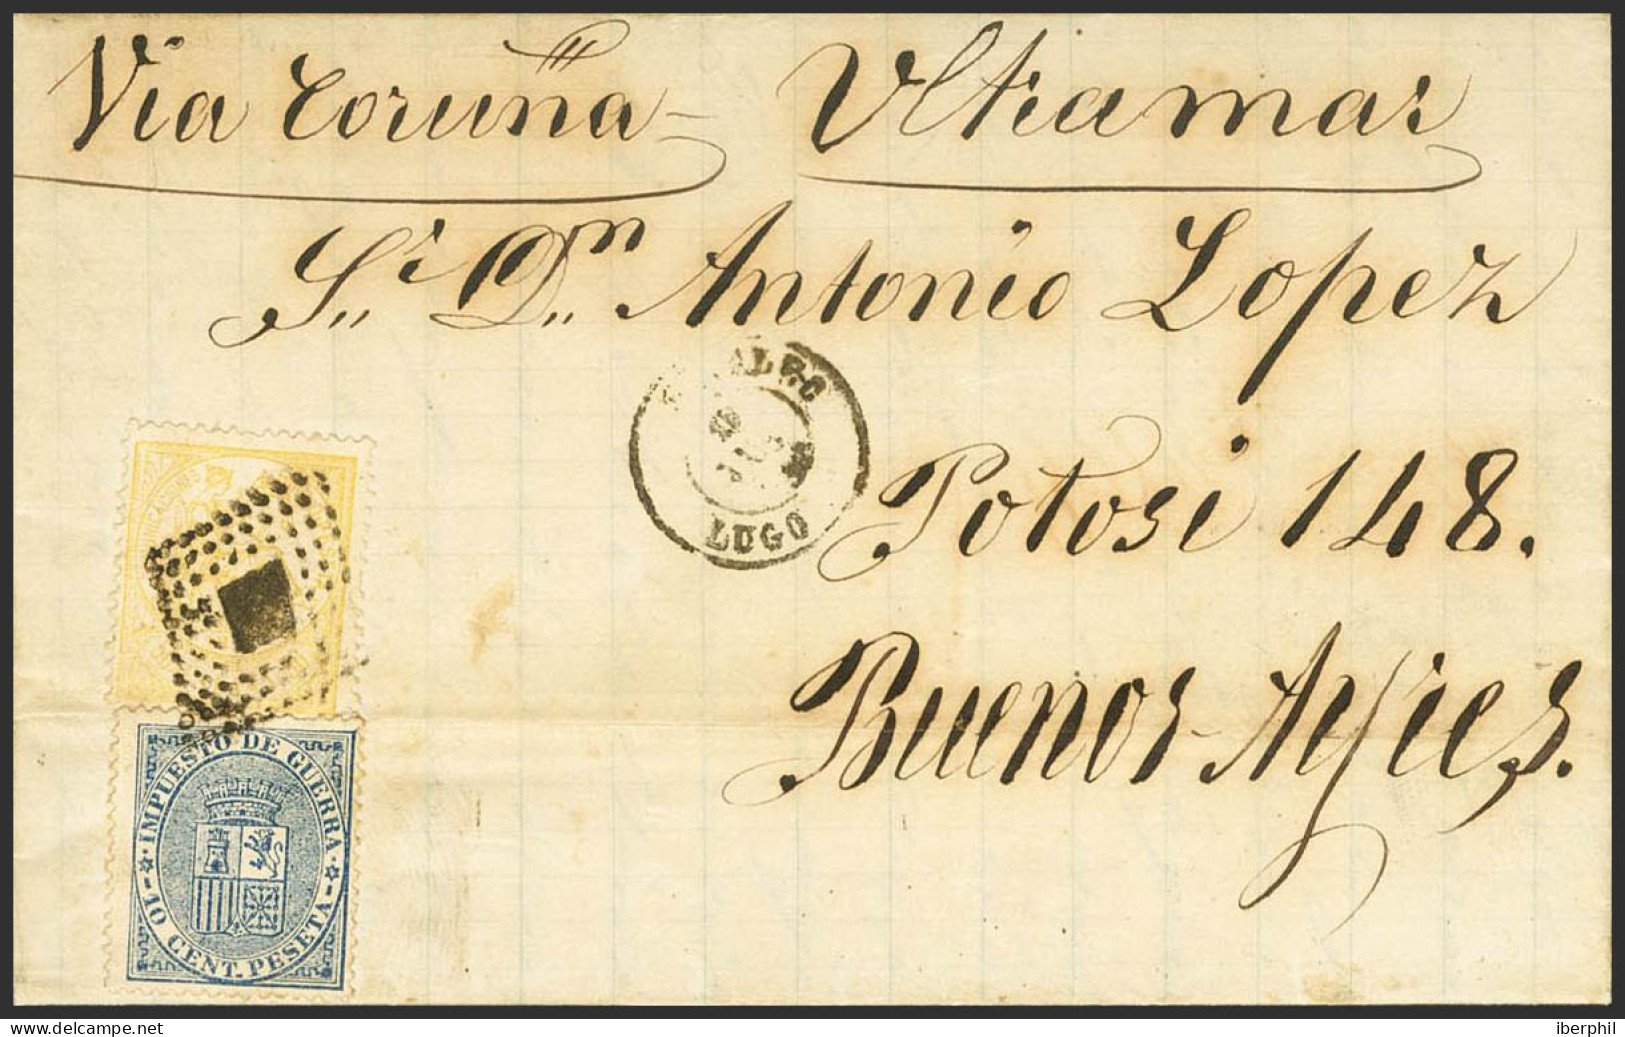 Via Coruña- Ultramar
Sr. Dn. Antonio Lopez
Potosi 148.
Buenos Ayres.
LUGO
IMPUESTO DE GUERRA
10 CENT. PESETA
delcampe.net
iberphil